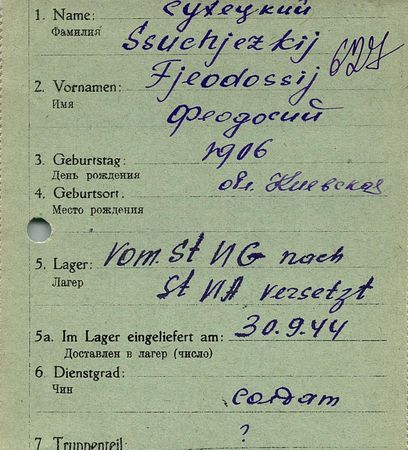 Сухецкий
1. Name: Ssuchjezkij
Фамилия
627
2. Vornamen: Fjeodossij
Имя
Феодосий
3. Geburtstag: 1906
День рождения
4. Geburtsort. обл. Киевская
Место рождения
5. Lager: vom. St VIG nach
Лагер
St VIA versetzt
5a. Im Lager eingeliefert am: 30.9.44
Доставлен в лагер (число)
6. Dienstgrad:
Чин
солдат
7. Truppenteil: ?